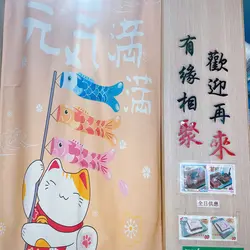 元気満満
歡迎再來
有緣相聚
全日供應